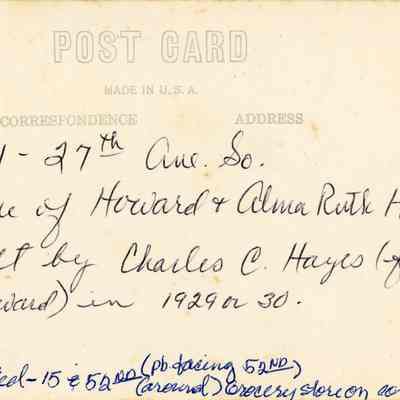 POST CARD
MADE IN U.S.A.
CORRESPONDENCE ADDRESS
- 27th Ave. So.
of Howard & Alma Ruth H
by Charles C. Hayes (
ward) in 1929 or 30.
- 15 & 52ND (pb facing 52ND)
(around) Grocery store on co